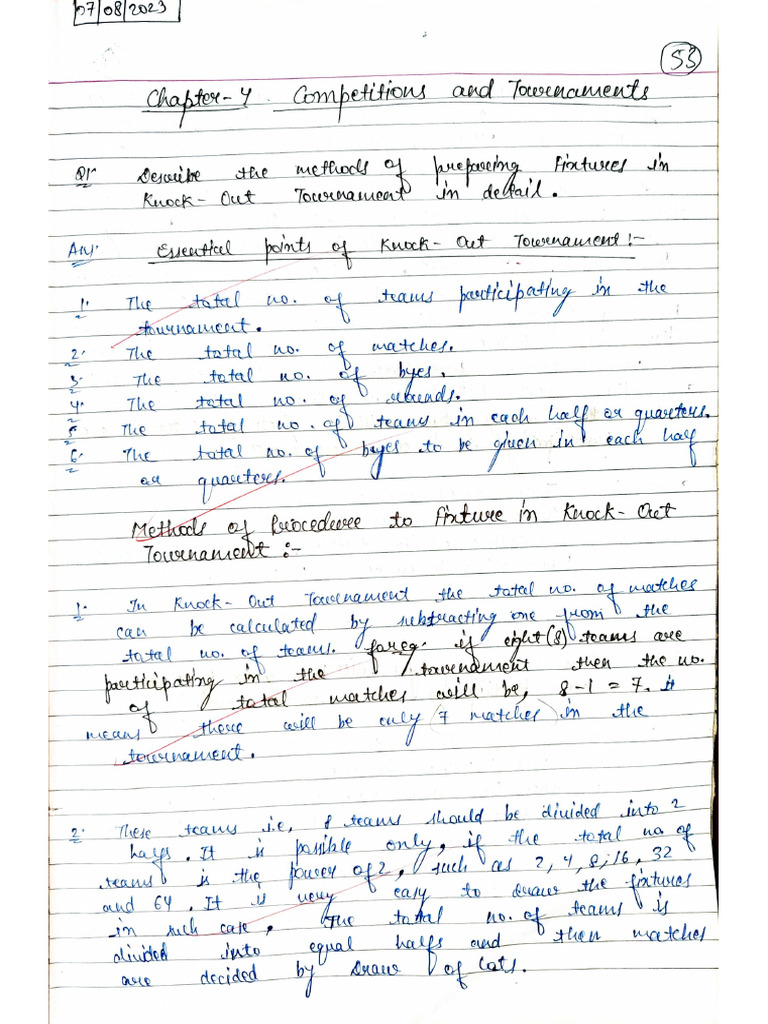 07/08/2023
53
Chapter-4. Competitions and Tournaments
Q1. Describe the methods of preparing Fixtures in
Knock-Out Tournament in detail.
Ans. Essential points of Knock-Out Tournament:-
1. The total no. of teams participating in the
tournament.
2. The total no. of matches.
3. The total no. of byes.
4. The total no. of rounds.
5. The total no. of teams in each half or quarters.
6. The total no. of byes to be given in each half
or quarters.
Methods of Procedure to Fixture in Knock-Out
Tournament:-
1. In Knock-Out Tournament the total no. of matches
can be calculated by subtracting one from the
total no. of teams. for eg. if eight (8) teams are
participating in the tournament then the no.
of total matches will be, 8-1=7. it
means there will be only 7 matches in the
tournament.
2. These teams i.e, 8 teams should be divided into 2
halfs. It is possible only, if the total no of
teams is the power of 2, such as 2, 4, 8, 16, 32
and 64. It is very easy to draw the fixtures
in such case, The total no. of teams is
divided into equal halfs and then matches
are decided by Draw of lots.